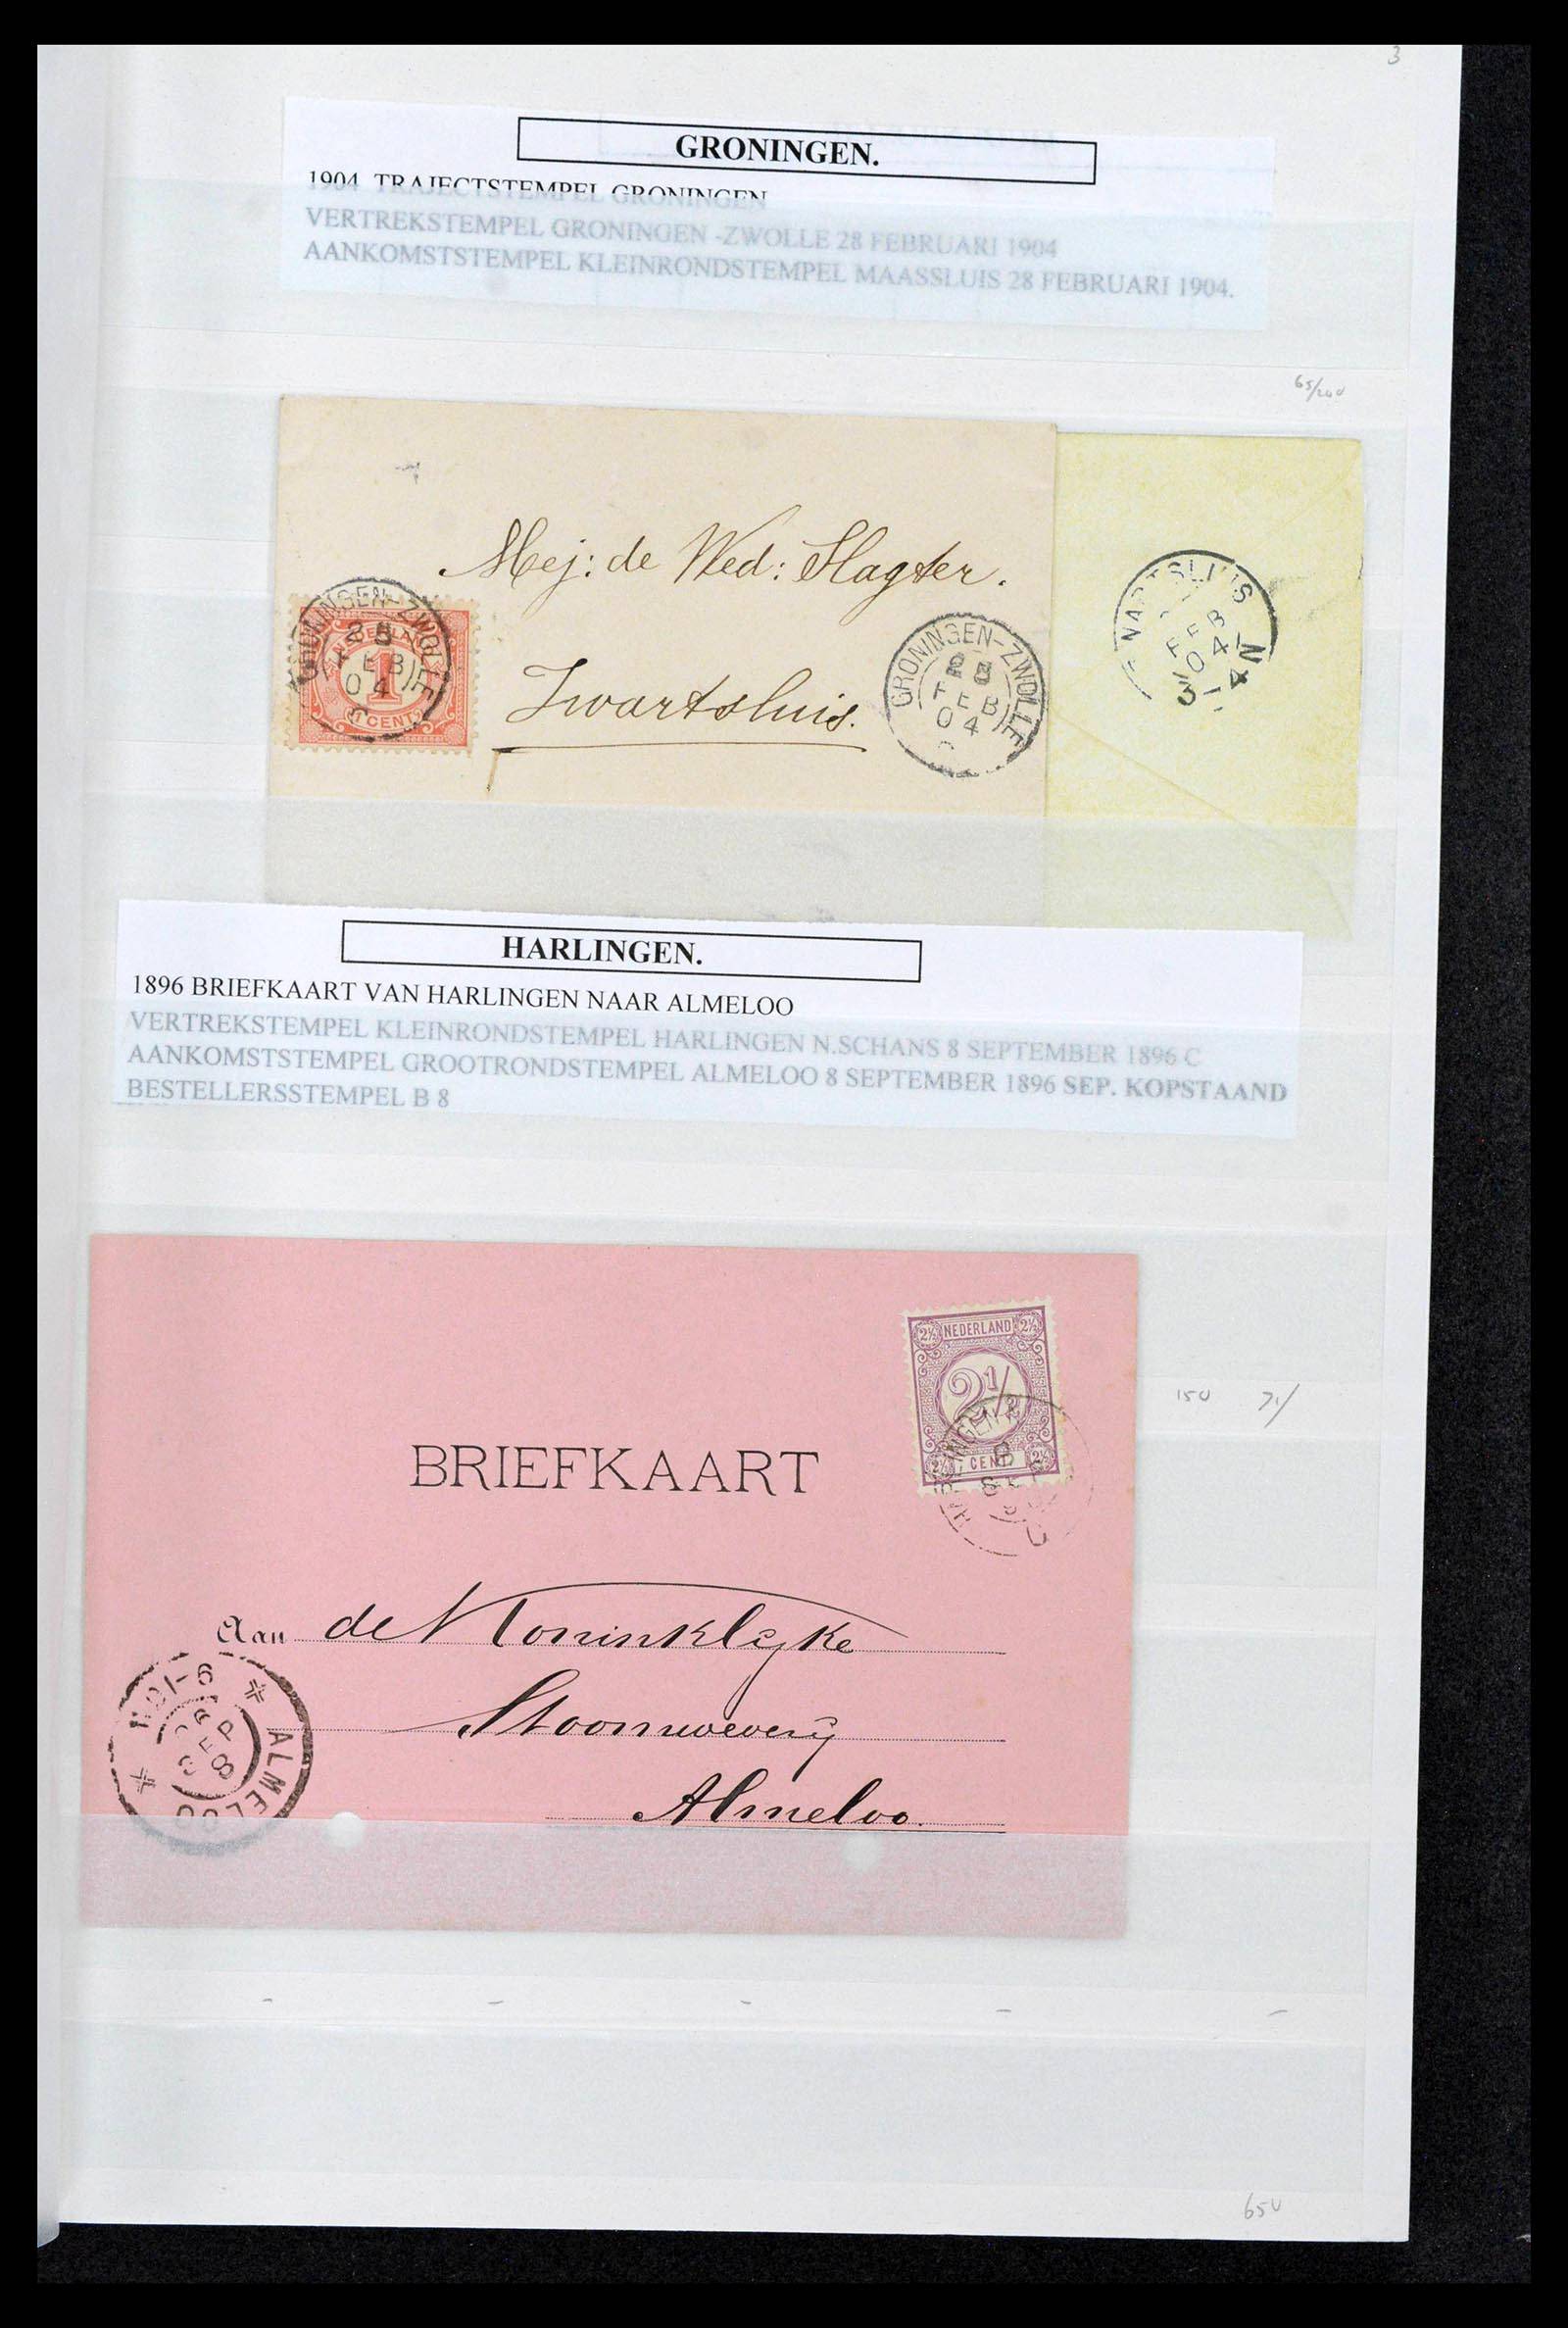 3
GRONINGEN.
1904 TRAJECTSTEMPEL GRONINGEN
VERTREKSTEMPEL GRONINGEN -ZWOLLE 28 FEBRUARI 1904
AANKOMSTSTEMPEL KLEINRONDSTEMPEL MAASSLUIS 28 FEBRUARI 1904.
Mej: de Wed: Slagter.
Zwartsluis.
NEDERLAND
1
1 CENT
GRONINGEN-ZWOLLE
FEB
04
GRONINGEN-ZWOLLE
FEB
04
FEB
04
HARLINGEN.
1896 BRIEFKAART VAN HARLINGEN NAAR ALMELOO
VERTREKSTEMPEL KLEINRONDSTEMPEL HARLINGEN N.SCHANS 8 SEPTEMBER 1896 C
AANKOMSTSTEMPEL GROOTRONDSTEMPEL ALMELOO 8 SEPTEMBER 1896 SEP. KOPSTAAND
BESTELLERSSTEMPEL B 8
2½ NEDERLAND 2½
2½
2½ CENT 2½
150
BRIEFKAART
Aan de Koninklijke
Stoomweverij
Almeloo.
ALMELOO
8 SEP
650